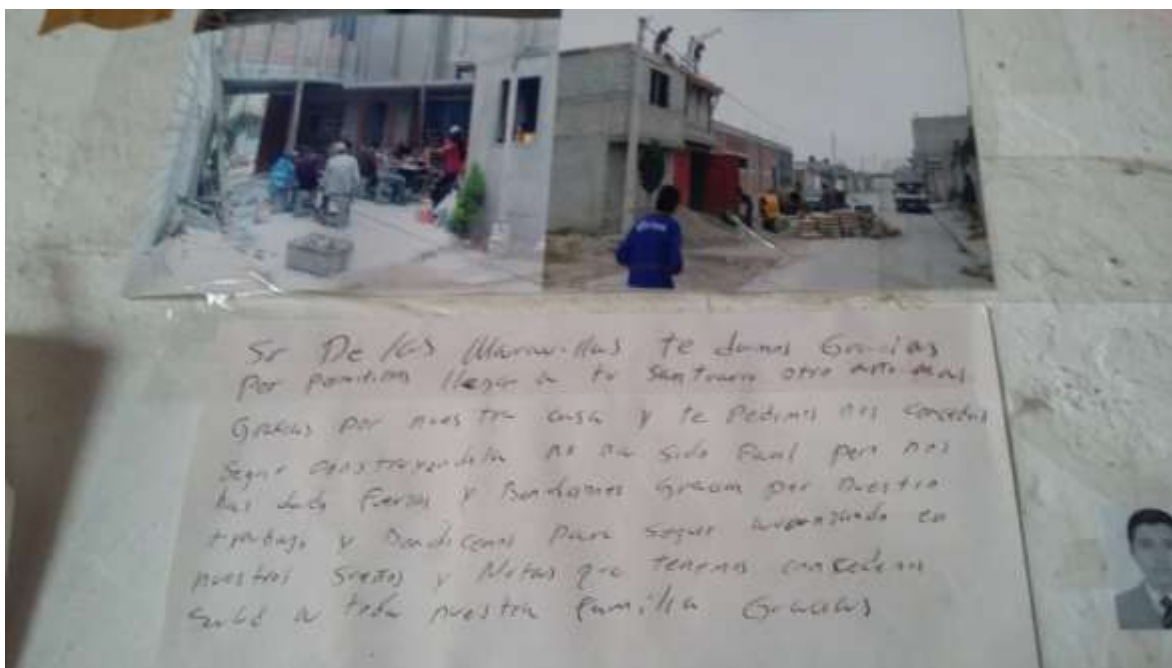 Sr De las Maravillas te damos Gracias
Por permitirnos llegar a tu Santuario otro año mas
Gracias por nuestra casa y te Pedimos nos concedas
Seguir construyendola no ha sido Facil pero nos
has dado Fuerzas y Bendiciones Gracias por nuestro
trabajo y Bendicenos Para seguir avanzando en
nuestros Sueños y Metas que tenemos concedenos
Salud a toda nuestra familia Gracias